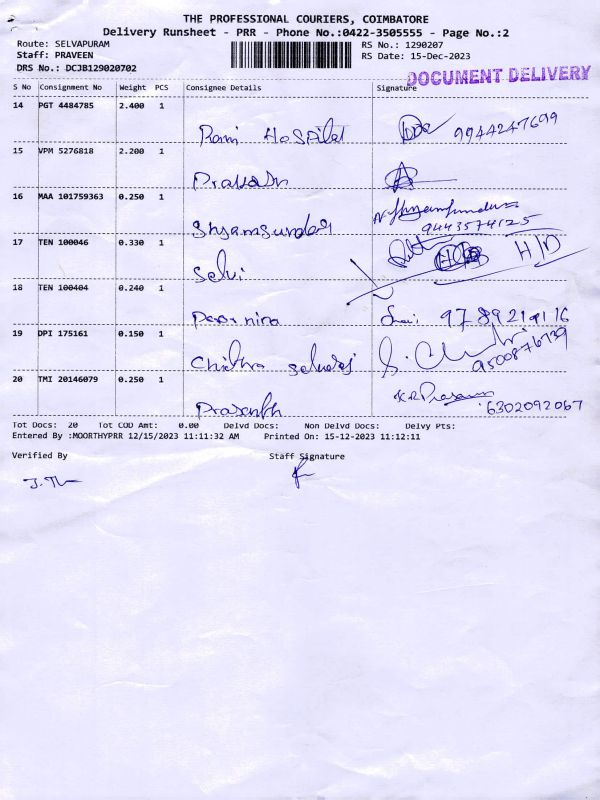 THE PROFESSIONAL COURIERS, COIMBATORE
Delivery Runsheet - PRR - Phone No.:0422-3505555 - Page No.:2
Route: SELVAPURAM RS No.: 1290207
Staff: PRAVEEN RS Date: 15-Dec-2023
DRS No.: DCJB129020702
DOCUMENT DELIVERY
S No Consignment No Weight PCS Consignee Details Signature
14 PGT 4484785 2.400 1
Rami Hospital 9944247699
15 VPM 5276818 2.200 1
Prakash
16 MAA 101759363 0.250 1
Shyamsundar N. Shyamsundar
9443574125
17 TEN 100046 0.330 1
Selvi H/D
18 TEN 100404 0.240 1
Poornima
19 DPI 175161 0.150 1
Chithra Selvaraj 9500876139
20 TMI 20146079 0.250 1
Prasanth 6302092067
Tot Docs: 20 Tot COD Amt: 0.00 Delvd Docs: Non Delvd Docs: Delvy Pts:
Entered By :MOORTHYPRR 12/15/2023 11:11:32 AM Printed On: 15-12-2023 11:12:11
Verified By Staff Signature